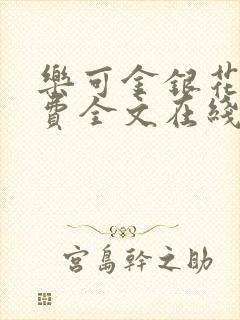 樂可金銀花
費全文在綫
宮島幹之助